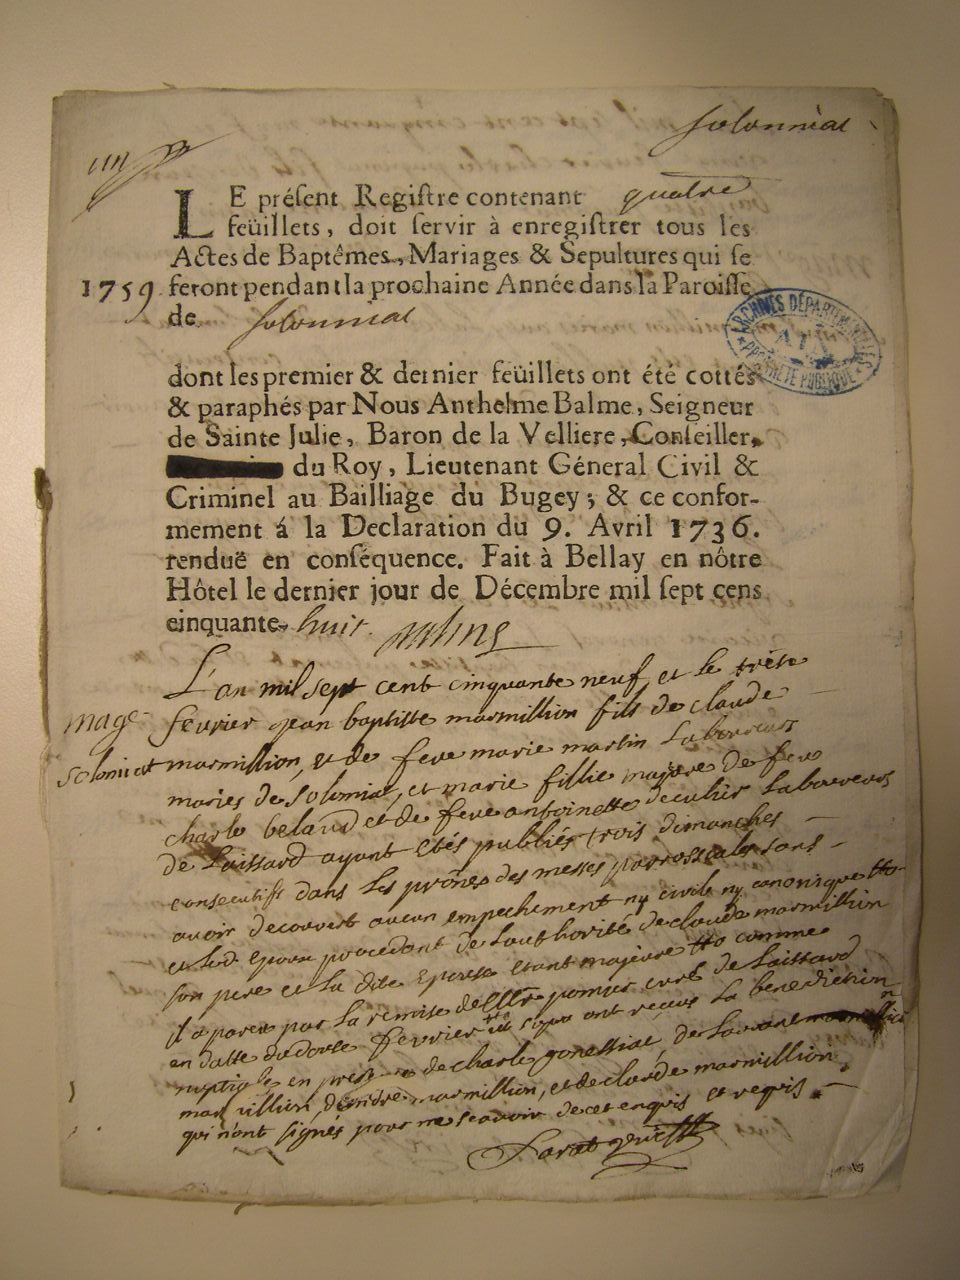 solonniat
LE présent Registre contenant quatre
feüillets, doit servir à enregistrer tous les
Actes de Baptêmes, Mariages & Sepultures qui se
1759. feront pendant la prochaine Année dans la Paroisse
de solonniat
ARCHIVES DÉPARTEMENTALES
PROPRIÉTÉ PUBLIQUE
dont les premier & dernier feüillets ont été cottés
& paraphés par Nous Anthelme Balme, Seigneur
de Sainte Julie, Baron de la Velliere, Conseiller,
du Roy, Lieutenant Géneral Civil &
Criminel au Bailliage du Bugey; & ce confor-
mement á la Declaration du 9. Avril 1736.
renduë en conséquence. Fait à Bellay en nôtre
Hôtel le dernier jour de Décembre mil sept cens
cinquante huit.
L'an mil sept cent cinquante neuf et le trese
mage fevrier jean baptiste marmillion fils de claude
solomiat marmillion, et de feue marie martin Laboureurs
maries de Solomiat, et marie fillie majeure de feu
charle belaud et de feue antoinette Laboureurs
de Laissard ayant etés publiés trois dimanches
consecutifs dans les prônes des messes parrossiales sans
avoir decouvert aucun empechement ny civile ny canonique
et procedant de Lauthorité de claude marmillion
son pere et La dite epouse etant majeure comme
il a paru par La remise de curé de Laissard
en datte du douse fevrier ont receus La benediction
nuptiale en presence de charle gonessiat, de
marmillion, d'andré marmillion, et de claude marmillion
qui n'ont signés pour ne scavoir de ce enquis et requis.